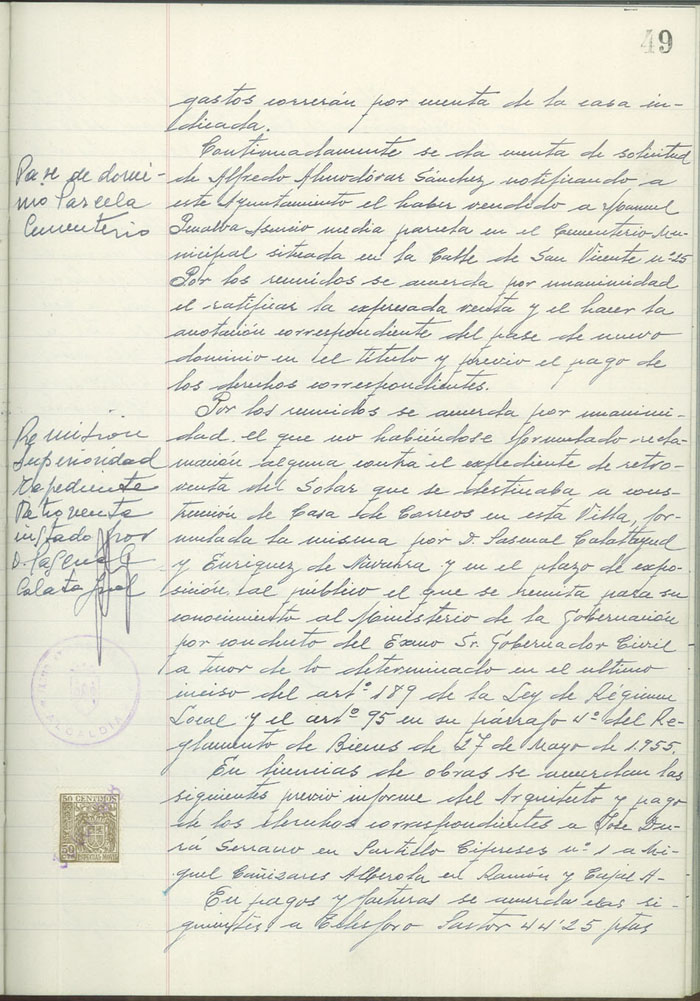 49
gastos correrán por cuenta de la casa in-
dicada.
Pase de domi-
nio Parcela
Cementerio
Continuadamente se da cuenta de solicitud
de Alfredo Almodóvar Sánchez notificando a
este Ayuntamiento el haber vendido a Manuel
Penalva Asencio media parcela en el Cementerio Mu-
nicipal situada en la Calle de San Vicente nº 25
Por los reunidos se acuerda por unanimidad
el ratificar la expresada venta y el hacer la
anotación correspondiente del pase de nuevo
dominio en el título y previo el pago de
los derechos correspondientes.
Remisión
Superioridad
Expediente
instado por
D. Pascual
Calatayud
Por los reunidos se acuerda por unanimi-
dad el que no habiéndose formulado recla-
mación alguna contra el expediente de retro-
venta del Solar que se destinaba a cons-
trucción de Casa de Correos en esta Villa, for-
mulada la misma por D. Pascual Calatayud
y Enriquez de Navarra y en el plazo de expo-
sición al público el que se remita para su
conocimiento al Ministerio de la Gobernación
por conducto del Exmo Sr. Gobernador Civil
a tenor de lo determinado en el ultimo
inciso del artº 189 de la Ley de Régimen
Local y el artº 95 en su párrafo 4º del Re-
glamento de Bienes de 27 de Mayo de 1.955.
ALCALDIA
En licencias de obras se acuerdan las
siguientes previo informe del Arquitecto y pago
de los derechos correspondientes a José Du-
rá Serrano en Partillo Cipreses nº 1 a Mi-
guel Cañizares Alberola en Ramón y Cajal A-
50 CENTIMOS
En pagos y facturas se acuerda las si-
guientes: a Telesforo Pastor 44'25 ptas